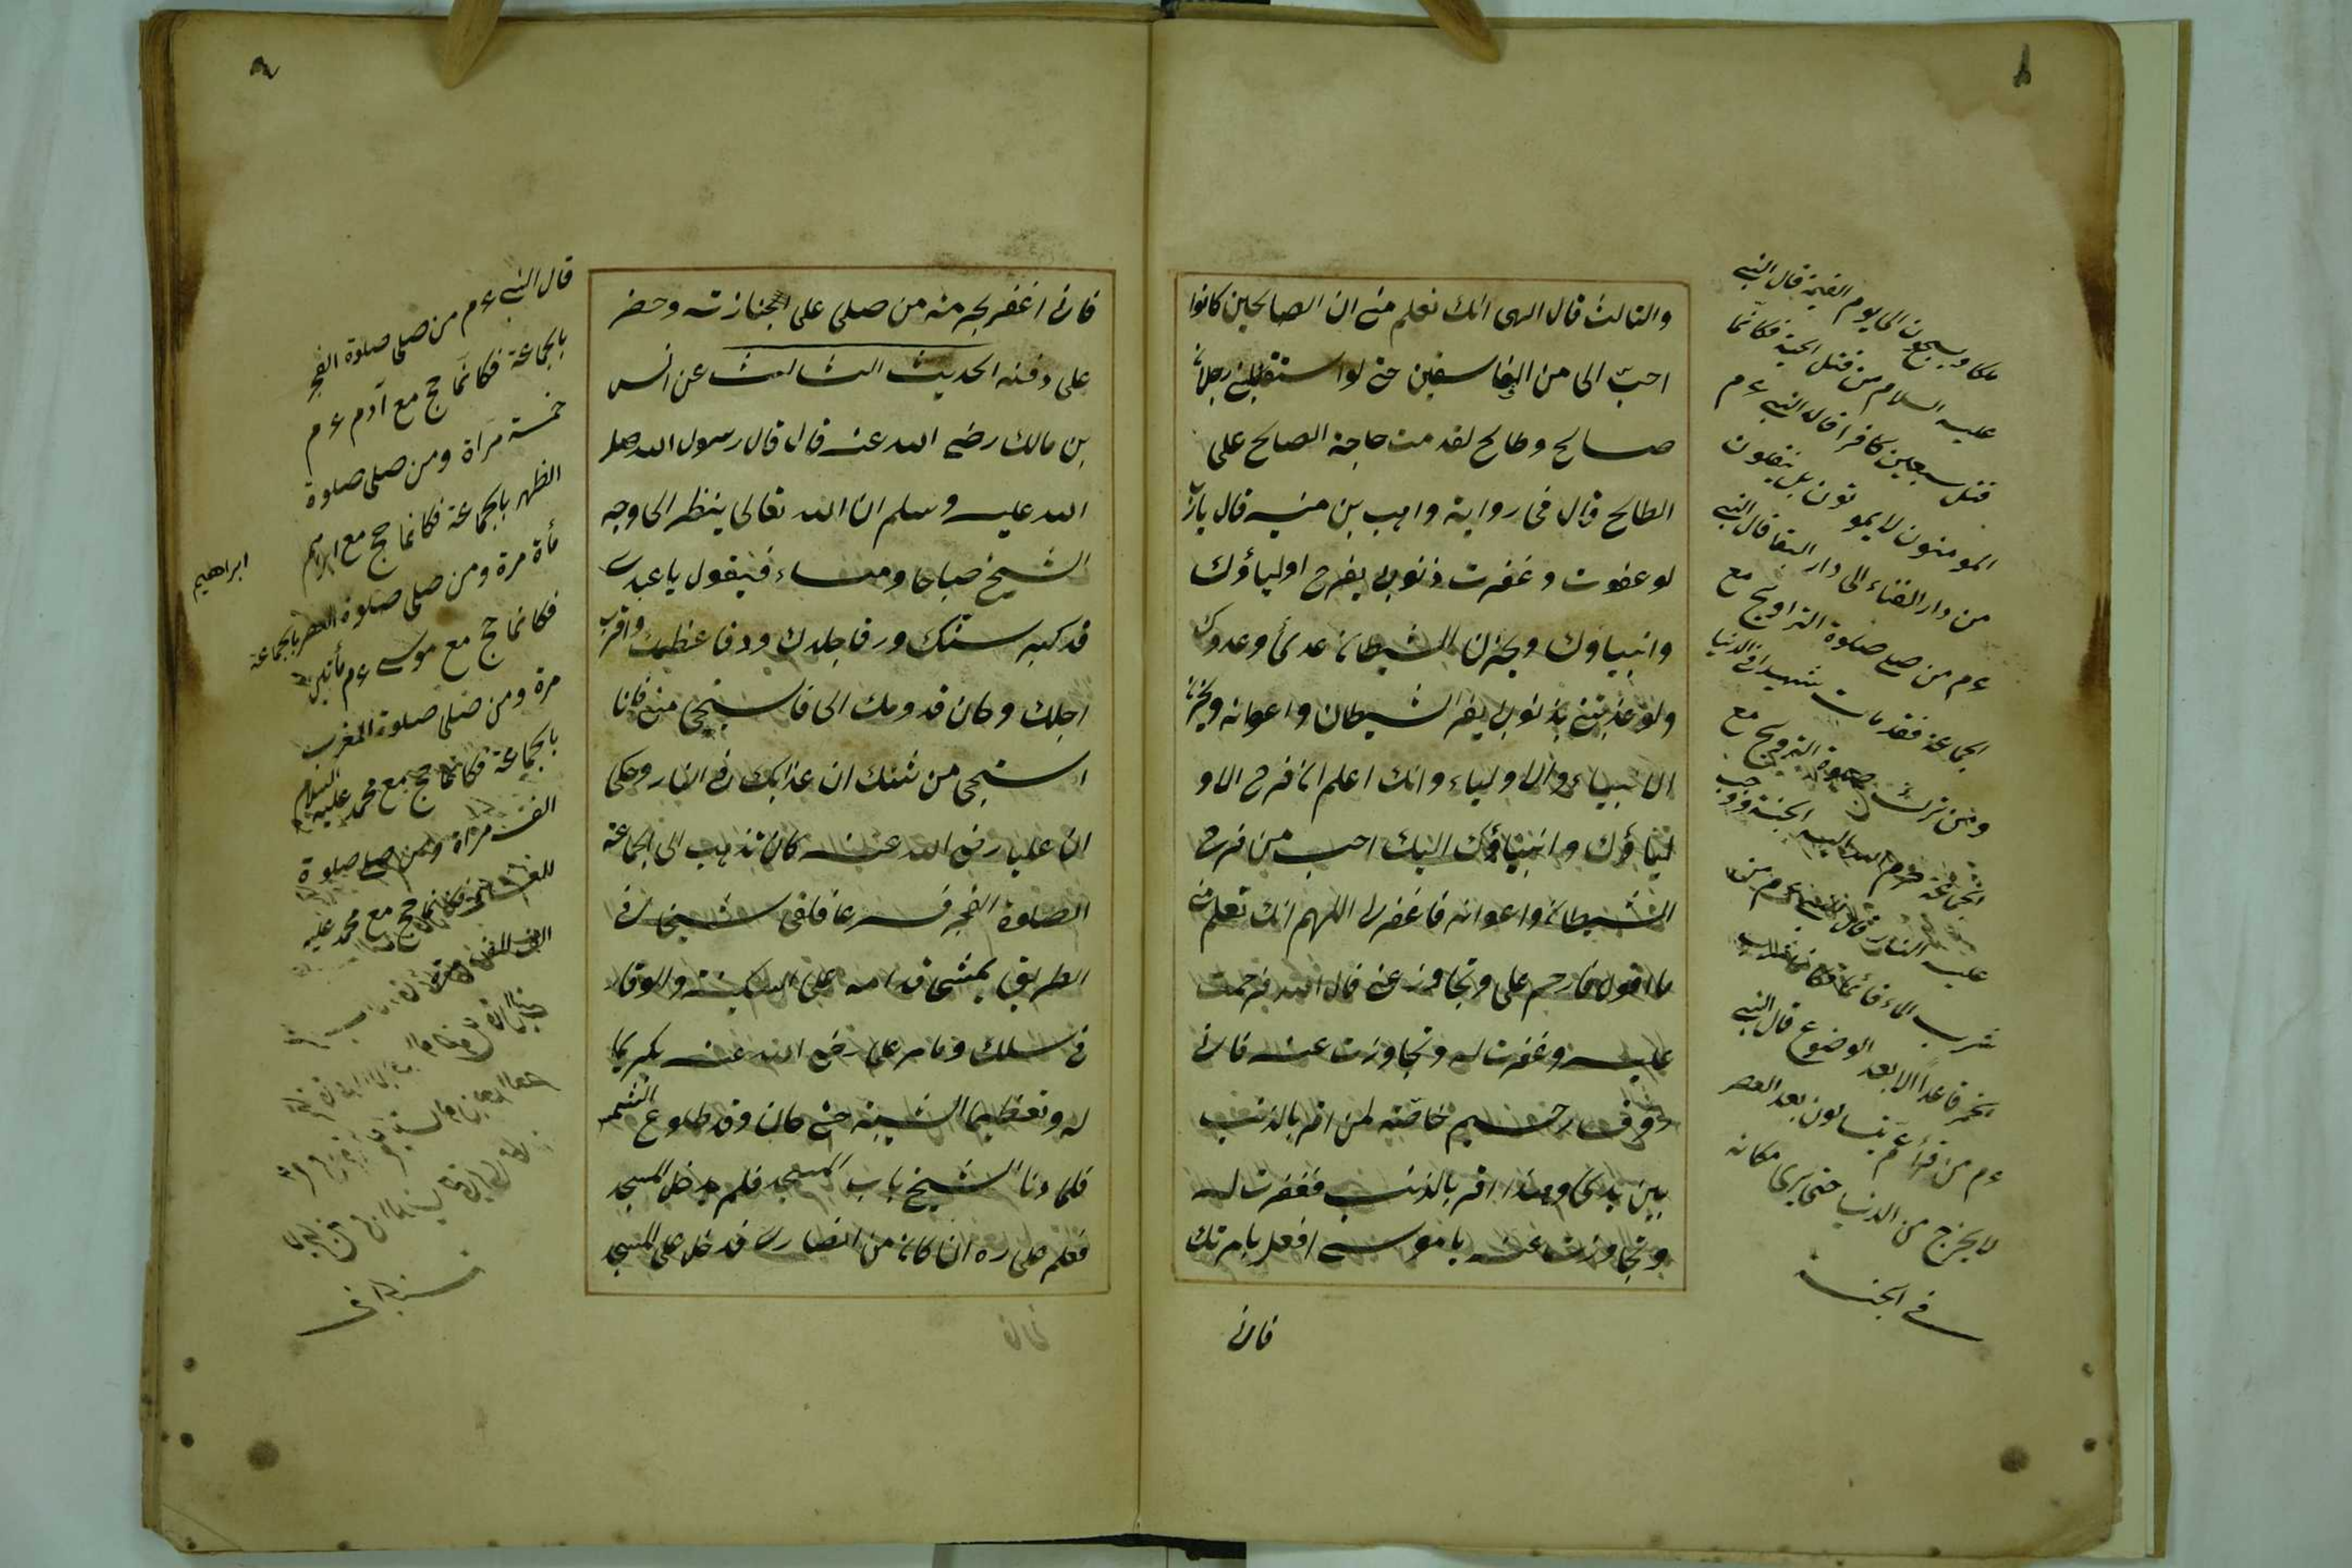 والثالث قال الهى انك تعلم منى ان الصالحين كانوا
احبّ الى من الفاسقين حتى لو استقبلنى رجلان
صالح وطالح لقدمت حاجة الصالح على
الطالح قال فى رواية واهب بن منبه قال يارب
لو عفوت وغفرت ذنوبى يفرح اولياؤك
وانبياؤك ويحزن الشيطان عدى وعدوك
ولو عذبتنى بذنوبى يفر الشيطان واعوانه ويحزن
الانبياء والاولياء وانك اعلم ان فرح الاو
لياؤك وانبياؤك اليك احب من فرح
الشيطان واعوانه فاغفرلى اللهم انك تعلم منى
ما اقول فارحم على وتجاوز عنى قال الله فرحمت
عليه وغفرت له وتجاوزت عنه فانى
رؤوف رحيم خاصّة لمن اقر بالذنب
بين يدى وهذا اقر بالذنب فغفرت له
وتجاوزت عنه يا موسى افعل بامرتك
فانى
ملكا ويسبحون الى يوم القيمة قال النبى
عليه السلام من قتل الحية فكانّما
قتل سبعين كافرا قال النبى ءم
المومنون لا يموتون بل ينقلون
من دار الفناء الى دار البقا قال النبى
ءم من صلى صلوة التراويح مع
الجماعة فقد مات شهيدا فى الدنيا
ومن ترك صلوة التراويح مع
الجماعة حرم الله اليه الجنة ووجب
عليه النار قال النبى ءم من
شرب الماء قائما فكانما شرب
الخمر قاعداً الا بعد الوضوع قال النبى
ءم من قرأ عم يتسالون بعد العصر
لا يخرج من الدنيا حتى يرى مكانه
فى الجنة
فانى اغفر بحرمة من صلى على الجنازته وحضر
على دفنه الحديث الثالث عن انس
بن مالك رضى الله عنه قال قال رسول الله صلى
الله عليه وسلم ان الله تعالى ينظر الى وجه
الشيخ صباحا ومساء فيقول يا عبدى
قد كبر سنك ورقا جلدك ودقا عظمك واقرب
اجلك وكان قدومك الى فاستحى منى فانا
استحى من شئبك ان عذابك فى النار وحكى
ان عليا رضى الله عنه كان تذهب الى الجماعة
الصلوة الفجر فسرعا فلقى شيخا فى
الطريق يمشى قدامه على السكينة والوقار
فى سلك ومامر على رضى الله عنه تكريما
له وتعظيما لشيبته حتى كان وقد طلوع الشمس
فلما دنا الشيخ باب المسجد فلم يدخل المسجد
فعلم على ره ان كان من انصارى فدخل على المسجد
قال النبى ءم من صلى صلوة الفجر
بالجماعة فكانّما حج مع آدم ءم
خمسة مراة ومن صلى صلوة
الظهر بالجماعة فكانما حج مع ابراهيم
ابراهيم
مأة مرة ومن صلى صلوة العصر بالجماعة
فكانما حج مع موسى ءم مأتين
مرة ومن صلى صلوة المغرب
بالجماعة فكانما حج مع محمد عليه السلام
الف مراة ومن صلى صلوة
فكانما حج مع محمد عليه